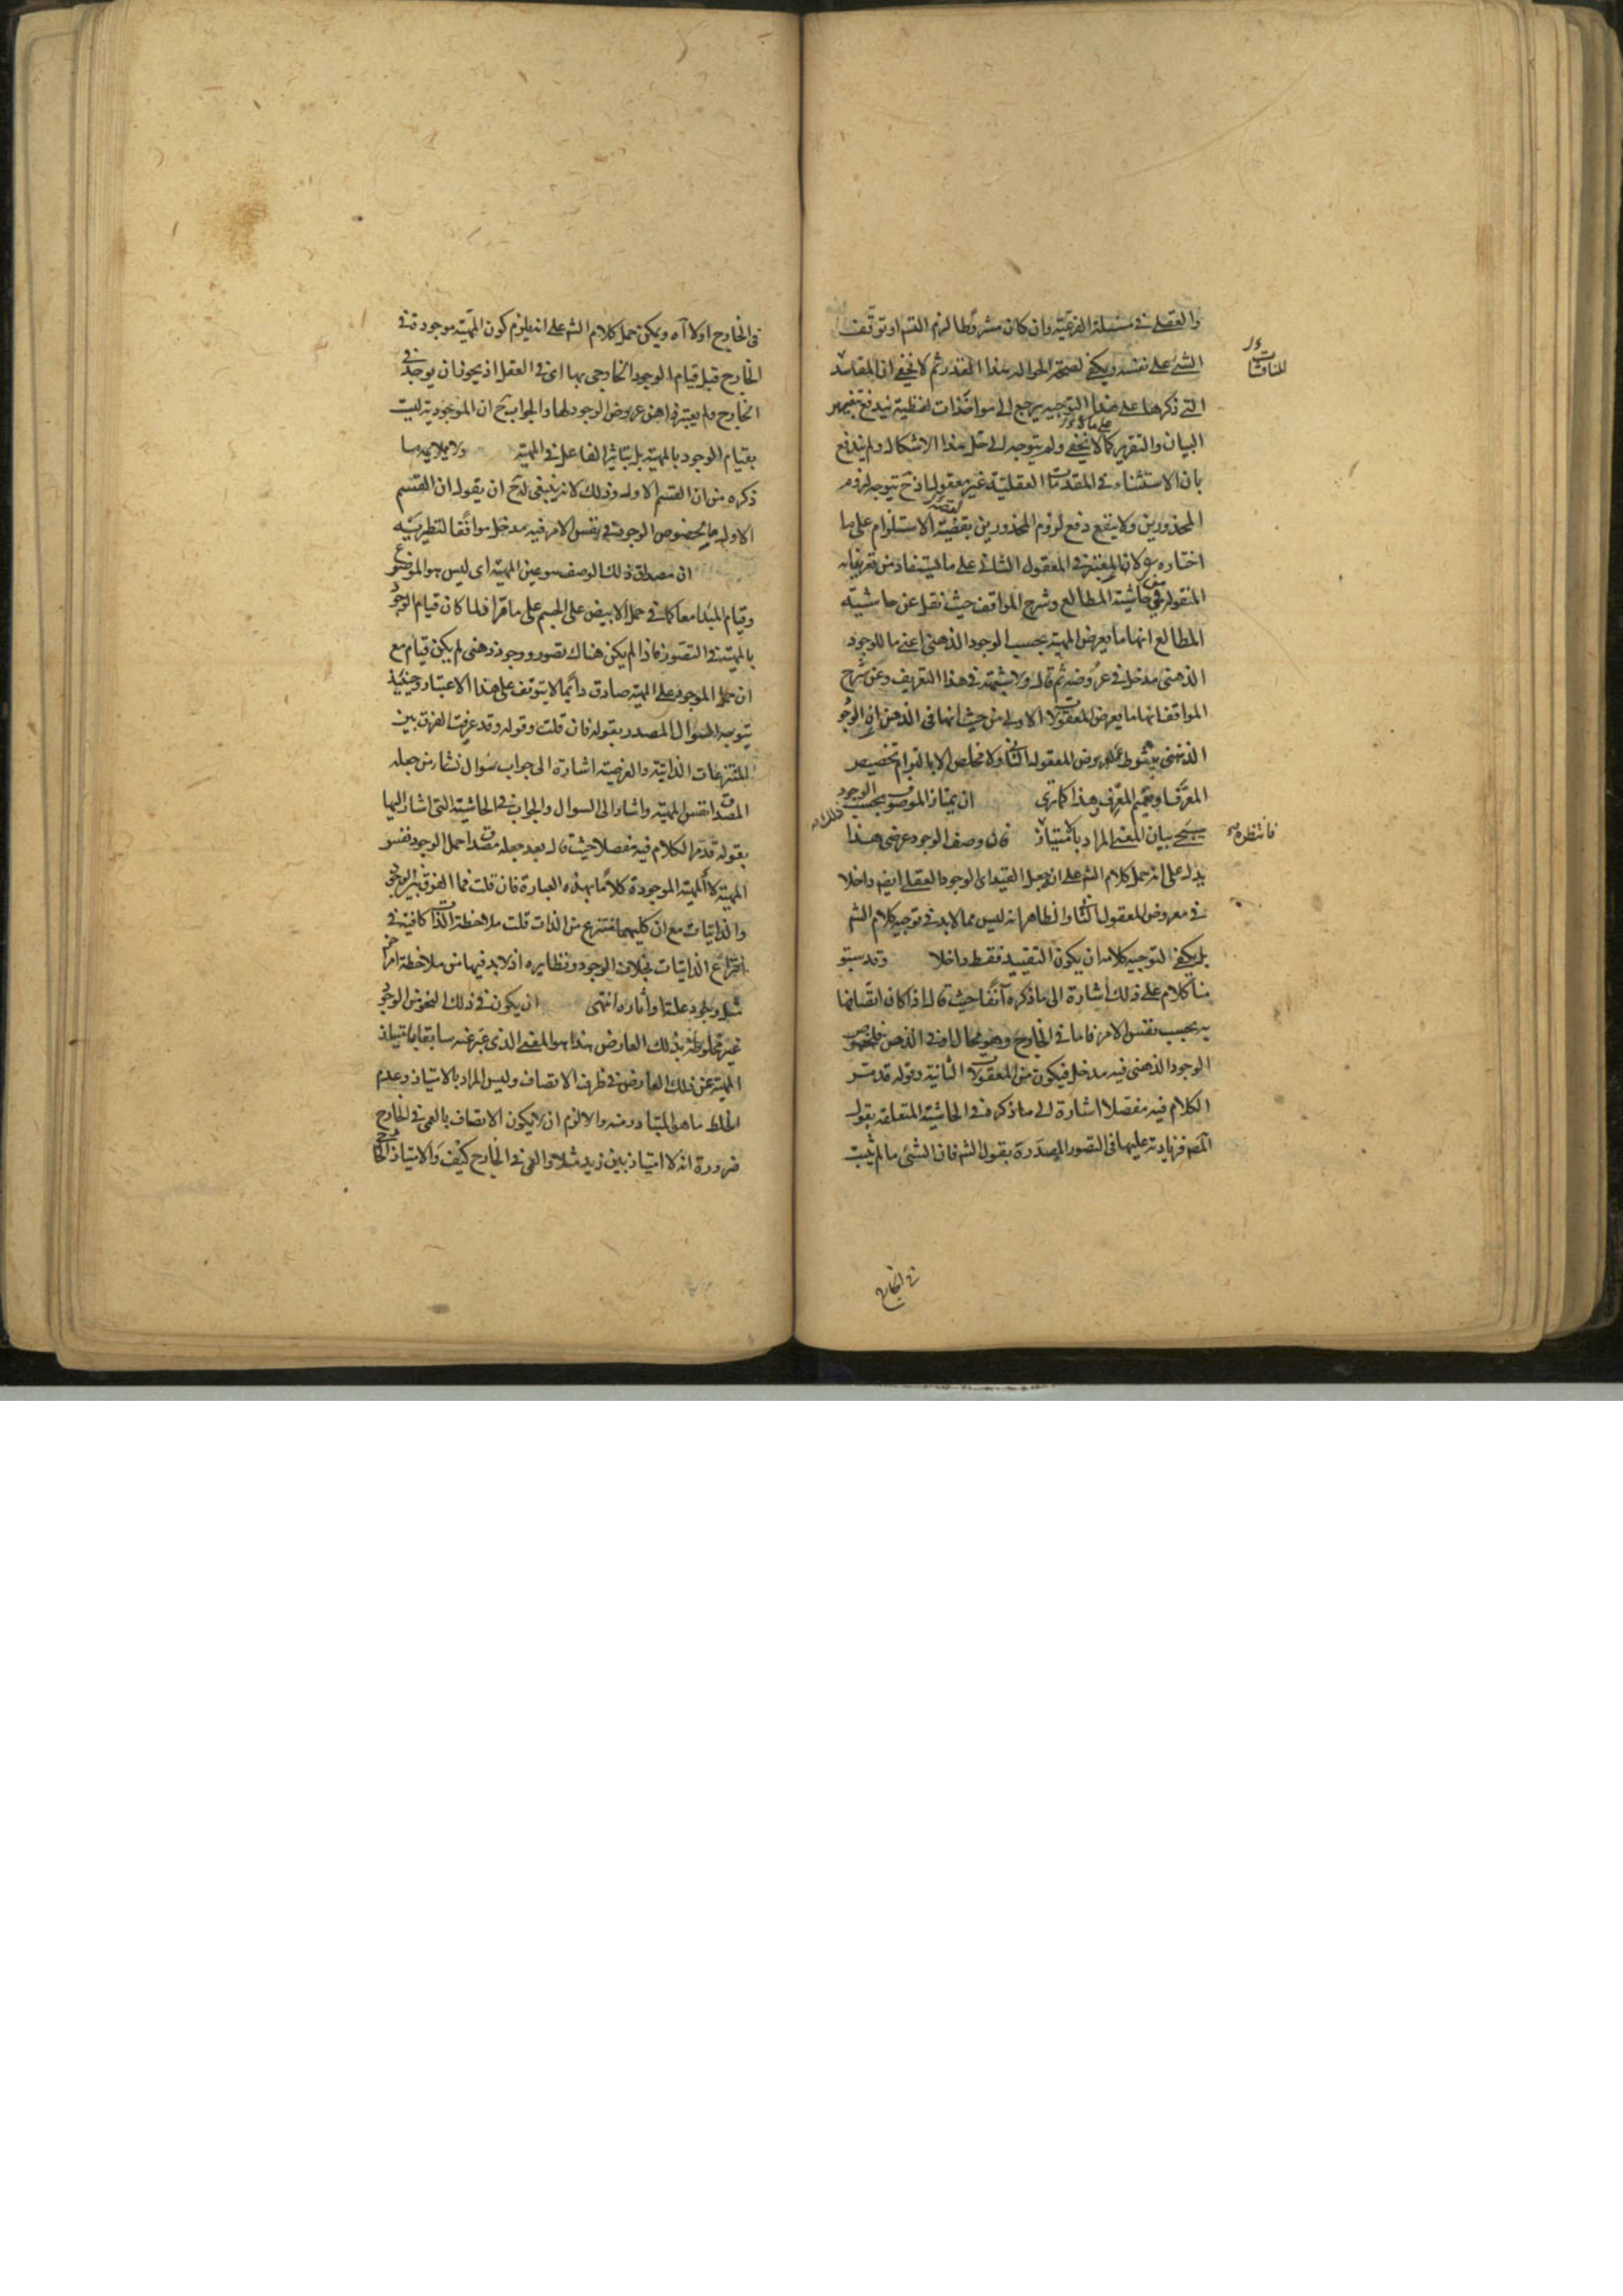 والعقلي في مسئلة الفرعية وان كان مشروطا لزم التسم او توقف
الشئ على نفسه ويكفي لصحة الحوالة هذا القدر ثم لا يخفى ان المفاسد
التي ذكرها على هذا التوجيه يرجع الى مواخذات لفظية يندفع بتغيير
البيان والتقرير كما لا يخفى ولم يتوجه الى حل هذا الاشكال ولم يندفع
بان الاستثناء في المقدمات العقلية غير معقول اذ ح يتوجه لزوم
المحذورين ولا ينفع دفع لزوم المحذورين بقضية الاستلزام على ما
اختاره لان المعتبر في المعقول الثاني على ما يستفاد من تعريفاته
المنقولة في حاشية المطالع وشرح المواقف حيث نقل عن حاشية
المطالع انها ما يعرض المهية بحسب الوجود الذهني اعني ما للوجود
الذهني مدخل في عروضه ثم قال ولا شبهة في هذا التعريف وعن شرح
المواقف انها ما يعرض المعقولات الاولى من حيث انها في الذهن اذ الوجود
الذهني شرط لعروض المعقول الثاني ولا مخلص الا بالتزام تخصيص
المعرف او تعميم المعرف هذا كما ترى ان يمتاز الموصوف بحسب الوجود
سيجئ بيان المعنى المراد بالامتياز قال وصف الوجود عرضي هذا
يدل على انه حمل كلام الشم على ان جعل القيد اى الوجود العقلي ايضا داخلا
في معروض المعقول الثاني والظاهر انه ليس مما لابد في توجيه كلام الشم
بل يكفي لتوجيه كلامه ان يكون التقييد فقط داخلا وقد سبق
منا كلام على ذلك اشارة الى ما ذكره آنفا حيث قال اذا كان اتصافها
به بحسب نفس الامر فاما في الخارج وهو محال او في الذهن فلخصوص
الوجود الذهني فيه مدخل فيكون من المعقولات الثانية وقوله قد مر
الكلام فيه مفصلا اشارة الى ما ذكره في الحاشية المتعلقة بقول
المصم فزيادته عليها في التصور المصدرة بقول الشم فان الشئ ما لم يثبت
في الخارج
المناقشات
فانتظره
في الخارج اولا آه ويمكن حمل كلام الشم على انه يلزم كون المهية موجودة في
الخارج قبل قيام الوجود الخارجي بها اى في العقل اذ يجوز ان يوجد في
الخارج ولم يعتبر ذاهن عروض الوجود لها والجواب ح ان الموجودية ليست
بقيام الوجود بالمهية بل بتاثير الفاعل في المهية ولا يلايمه ما
ذكره من ان القسم الاول وذلك لانه ينبغي له ح ان يقول ان القسم
الاول ما لخصوص الوجود في نفس الامر فيه مدخل موافقا لنظيريه
ان مصداق ذلك الوصف هو عين المهية اى ليس هو الموضوع
وقيام المبدا معا كما في حمل الابيض على الجسم على ما قرر فلما كان قيام الوجود
بالمهية في التصور فاذا لم يكن هناك تصور ووجود ذهني لم يكن قيام مع
ان حمل الموجود على المهية صادق دائما لا يتوقف على هذا الاعتبار وحينئذ
يتوجه السوال المصدر بقوله فان قلت وقوله وقد عرفت الفرق بين
المنتزعات الذاتية والعرضية اشارة الى جواب سوال نشا من جعله
المصداق نفس المهية واشار الى السوال والجواب في الحاشية التي اشار اليها
بقوله قد مر الكلام فيه مفصلا حيث قال بعد جعله مصداق حمل الوجود نفس
المهية لا المهية الموجودة كلاما بهذه العبارة فان قلت فما الفرق بين الوجود
والذاتيات مع ان كليهما منتزع من الذات قلت ملاحظة الذات كافية في
انتزاع الذاتيات بخلاف الوجود ونظايره اذ لابد فيها من ملاحظة امر آخر
مثل وجود علتها وآثاره انتهى ان يكون في ذلك النحو من الوجود
غير مخلوطة بذلك العارض هذا هو المعنى الذي عبر عنه سابقا بامتياز
المهية عن ذلك العارض في ظرف الاتصاف وليس المراد بالامتياز وعدم
الخلط ما هو المتبادر منه والا لزم ان لا يكون الاتصاف بالعمى في الخارج
ضرورة انه لا امتياز بين زيد مثلا والعمى في الخارج كيف والامتياز الخارجي